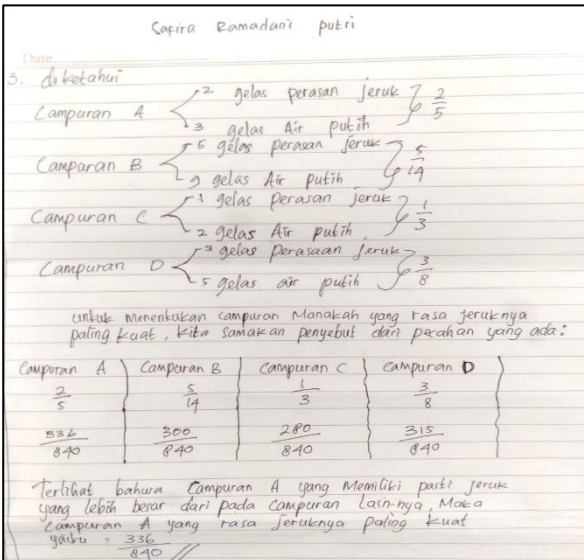 Safira Ramadani putri
Date
3. diketahui
Campuran A
2 gelas perasan jeruk
3 gelas Air putih
2/5
Campuran B
5 gelas perasan jeruk
9 gelas Air putih
5/14
Campuran C
1 gelas perasan jeruk
2 gelas Air putih
1/3
Campuran D
3 gelas perasaan jeruk
5 gelas air putih
3/8
untuk menentukan campuran Manakah yang rasa jeruknya
paling kuat, kita samakan penyebut dari pecahan yang ada:
Campuran A Campuran B Campuran C Campuran D
2/5 5/14 1/3 3/8
336/840 300/840 280/840 315/840
Terlihat bahwa Campuran A yang Memiliki pasti jeruk
yang lebih besar dari pada Campuran Lain-nya, Maka
Campuran A yang rasa jeruknya paling kuat
yaitu = 336/840